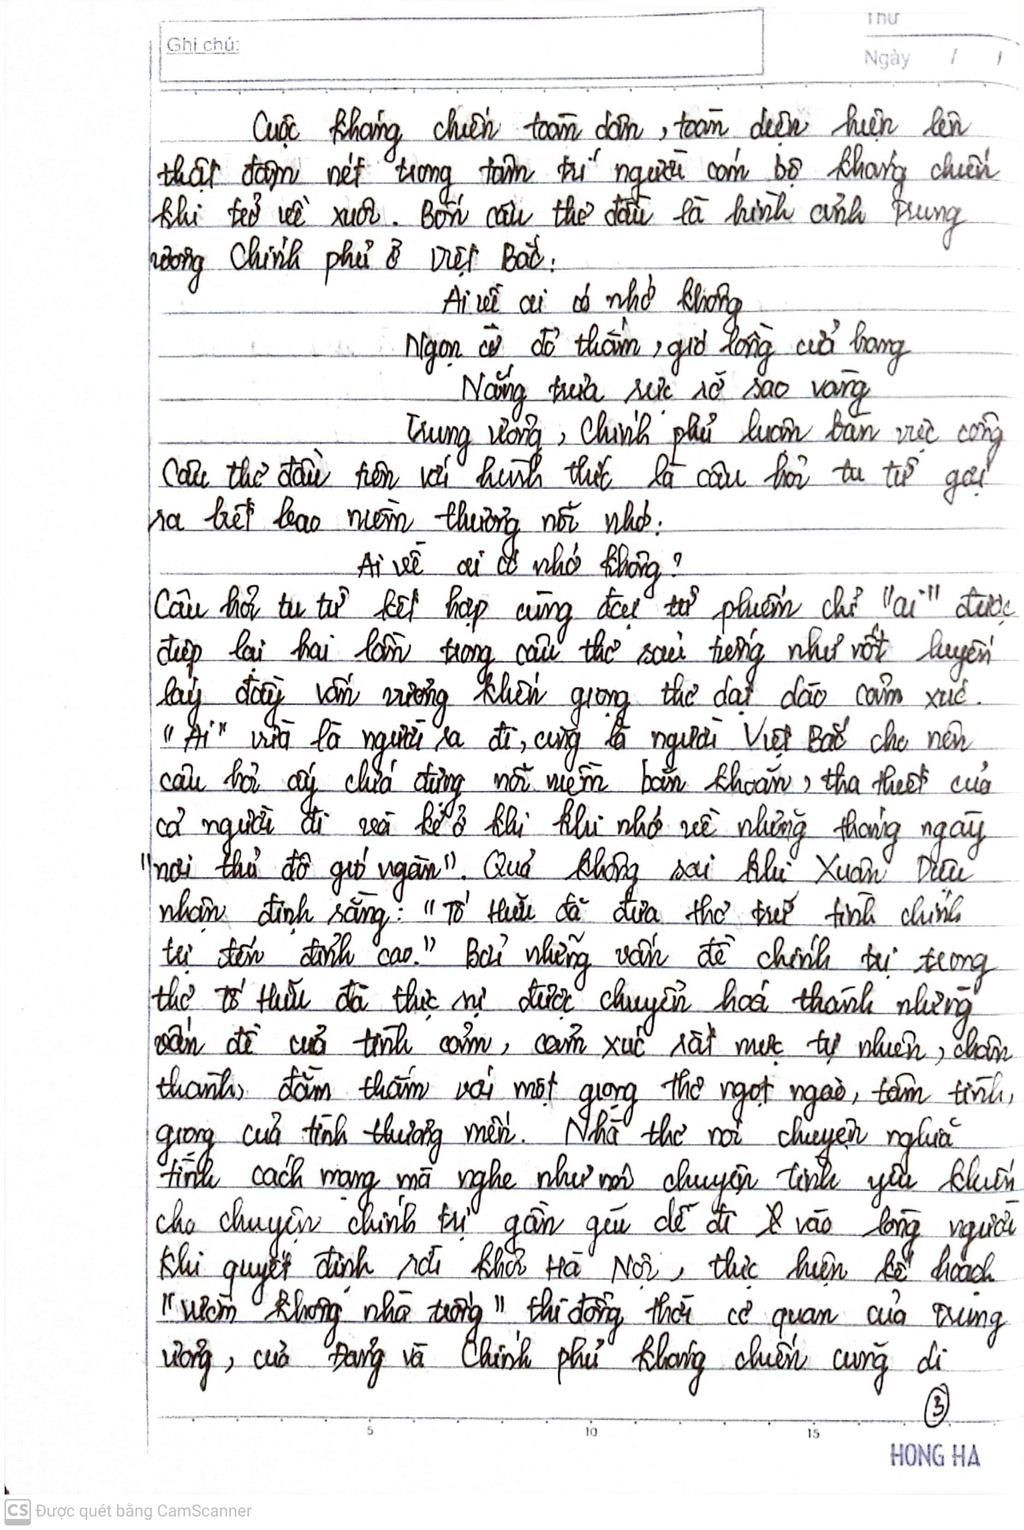 Ghi chú:
Thứ
Ngày / /
Cuộc kháng chiến toàn dân, toàn diện hiện lên
thật đậm nét trong tâm trí người cán bộ kháng chiến
khi trở về xuôi. Bốn câu thơ đầu là hình ảnh Trung
ương Chính phủ ở Việt Bắc:
Ai về ai có nhớ không
Ngọn cờ đỏ thắm, gió lồng cửa hang
Nắng trưa rực rỡ sao vàng
Trung ương, Chính phủ luôn bàn việc công
Câu thơ đầu tiên với hình thức là câu hỏi tu từ gợi
ra biết bao niềm thương nỗi nhớ:
Ai về ai có nhớ không?
Câu hỏi tu từ kết hợp cùng đại từ phiếm chỉ "ai" được
điệp lại hai lần trong câu thơ sau tiếng như nốt luyến
láy đầy vấn vương khiến giọng thơ dạt dào cảm xúc.
"Ai" vừa là người ra đi, cũng là người Việt Bắc cho nên
câu hỏi ấy chứa đựng nỗi niềm băn khoăn, tha thiết của
cả người đi và kẻ ở khi khi nhớ về những tháng ngày
"nơi thủ đô gió ngàn". Quả không sai khi Xuân Diệu
nhận định rằng: "Tố Hữu đã đưa thơ trữ tình chính
trị đến đỉnh cao." Bởi những vấn đề chính trị trong
thơ Tố Hữu đã thực sự được chuyển hoá thành những
vấn đề của tình cảm, cảm xúc rất mực tự nhiên, chân
thành, đằm thắm với một giọng thơ ngọt ngào, tâm tình,
giọng của tình thương mến. Nhà thơ nói chuyện nghĩa
tình cách mạng mà nghe như nói chuyện tình yêu khiến
cho chuyện chính trị gần gũi dễ đi vào lòng người
Khi quyết định rời khỏi Hà Nội, thực hiện kế hoạch
"vườn không nhà trống" thì đồng thời cơ quan của Trung
ương, của Đảng và Chính phủ kháng chiến cũng di
3
5 10 15
HONG HA
CS Được quét bằng CamScanner